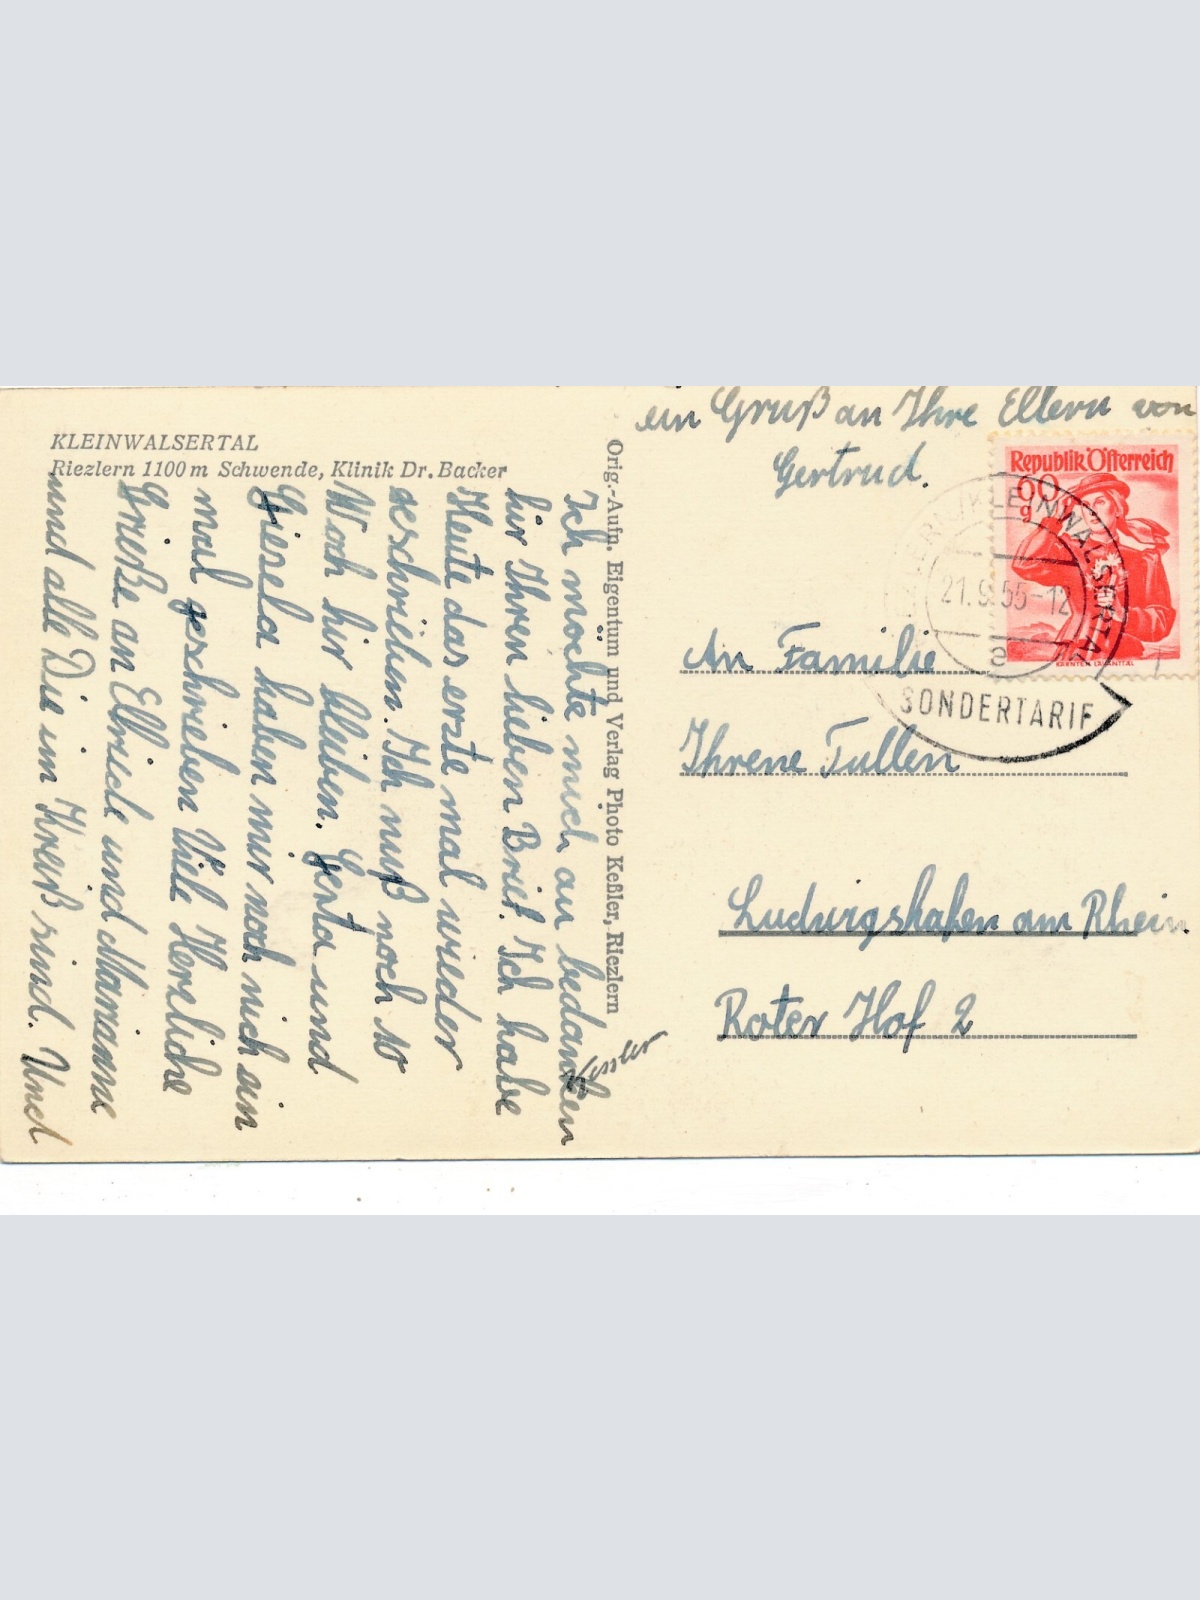 KLEINWALSERTAL
Riezlern 1100 m Schwende, Klinik Dr. Backer
Ich möchte mich an bedanken
für Ihren lieben Brief. Ich habe
Heute das erzte mal wieder
geschrieben. Ich muß noch so
Woch hir bleiben. Gerta und
Giesela haben mir noch nich ein
mal geschrieben Viele Herzliche
Grieße an Ellriede und Marianne
und alle Die im Kreiß sind. Und
ein Gruß an Ihre Eltern von
Gertrud.
Orig.-Aufn. Eigentum und Verlag Photo Keßler, Riezlern
Kessler
Republik Österreich
60 g
KÄRNTEN LAVANTTAL
KLEINWALSERTAL
21.9.55-12
e
SONDERTARIF
An Familie
Ihrene Tullen
Ludwigshafen am Rhein
Roter Hof 2